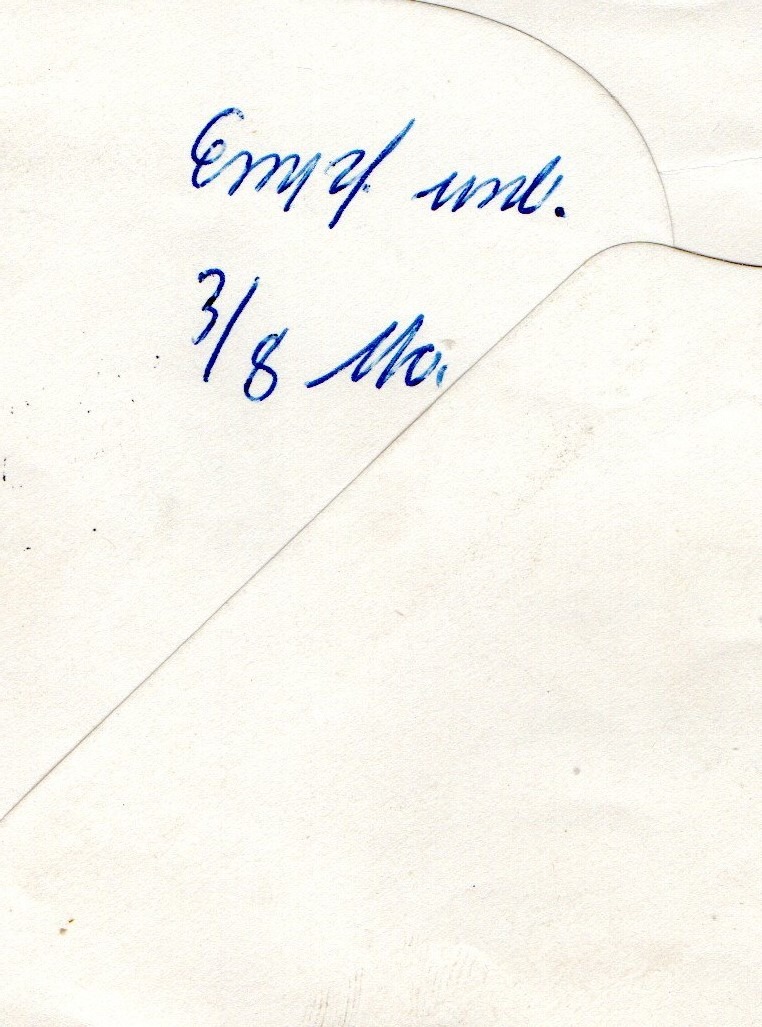 Empf. unb.
3/8 Mo.